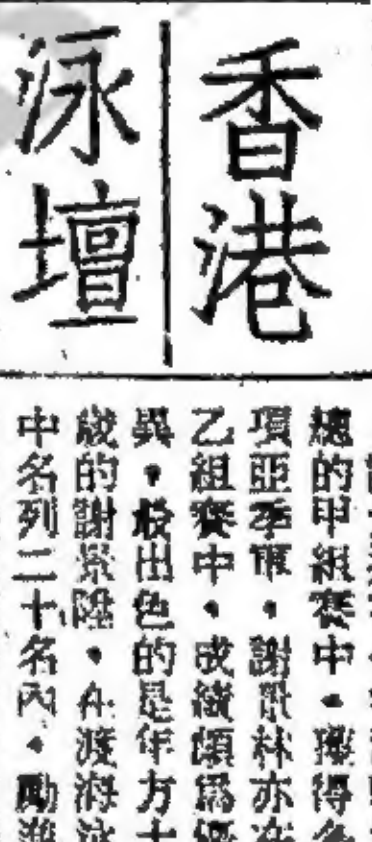 香港
泳壇
總的甲組賽中，獲得
項亞季軍，謝林亦在
乙組賽中，成績頗為優
異，最出色的是年方十
歲的謝景陞，在渡海泳
中名列二十名內，勵進